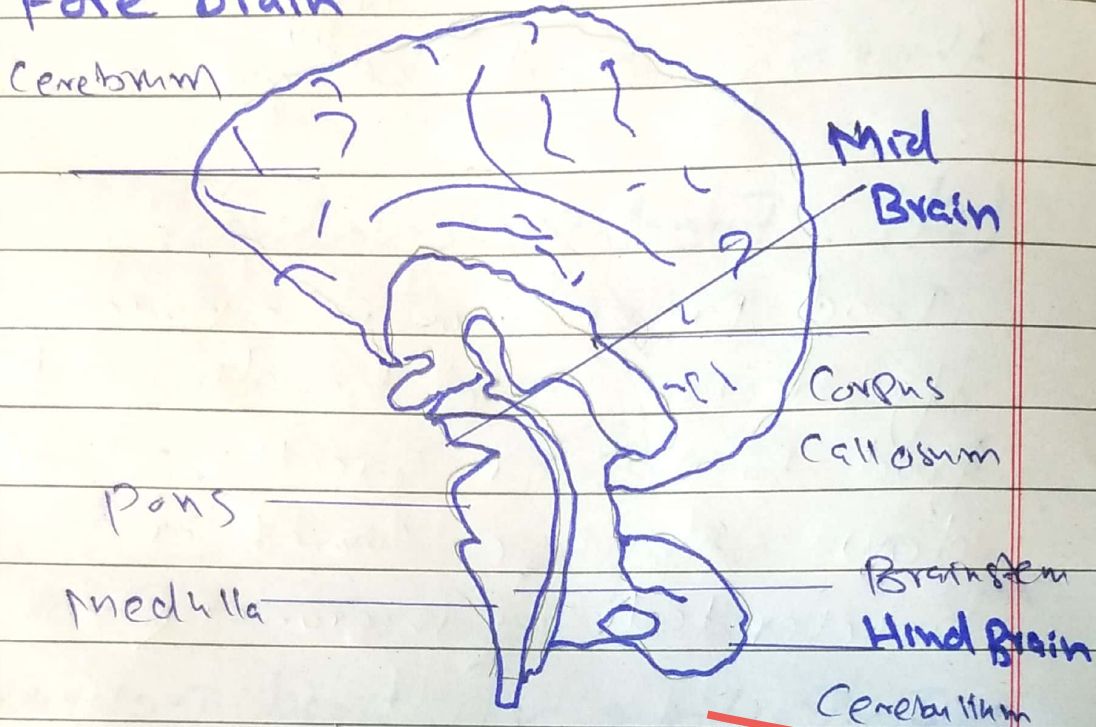 Fore Brain
Cerebrum
Mid
Brain
Corpus
Callosum
Pons
Brainstem
Medulla
Hind Brain
Cerebullum